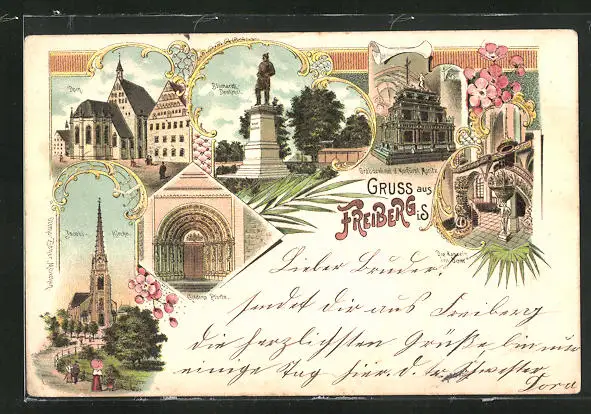 Dom
Bismarck
Denkmal.
Grabdenkmal d. Kurfürst Moritz
Gruss aus
Freiberg i. S.
Jacobi-Kirche.
Goldne Pforte.
Die Kanzeln
im Dom
Lieber Bruder.
sendet dir aus Freiberg
die herzlichsten Grüße bin nur
einige Tag hier. d. Schwester
Dora